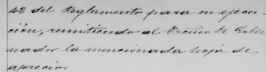 42 del Reglamento para su ejecu-
ción, remitiendo al Escmo. Sr. Gober-
nador la mencionada hoja de
aprecio.